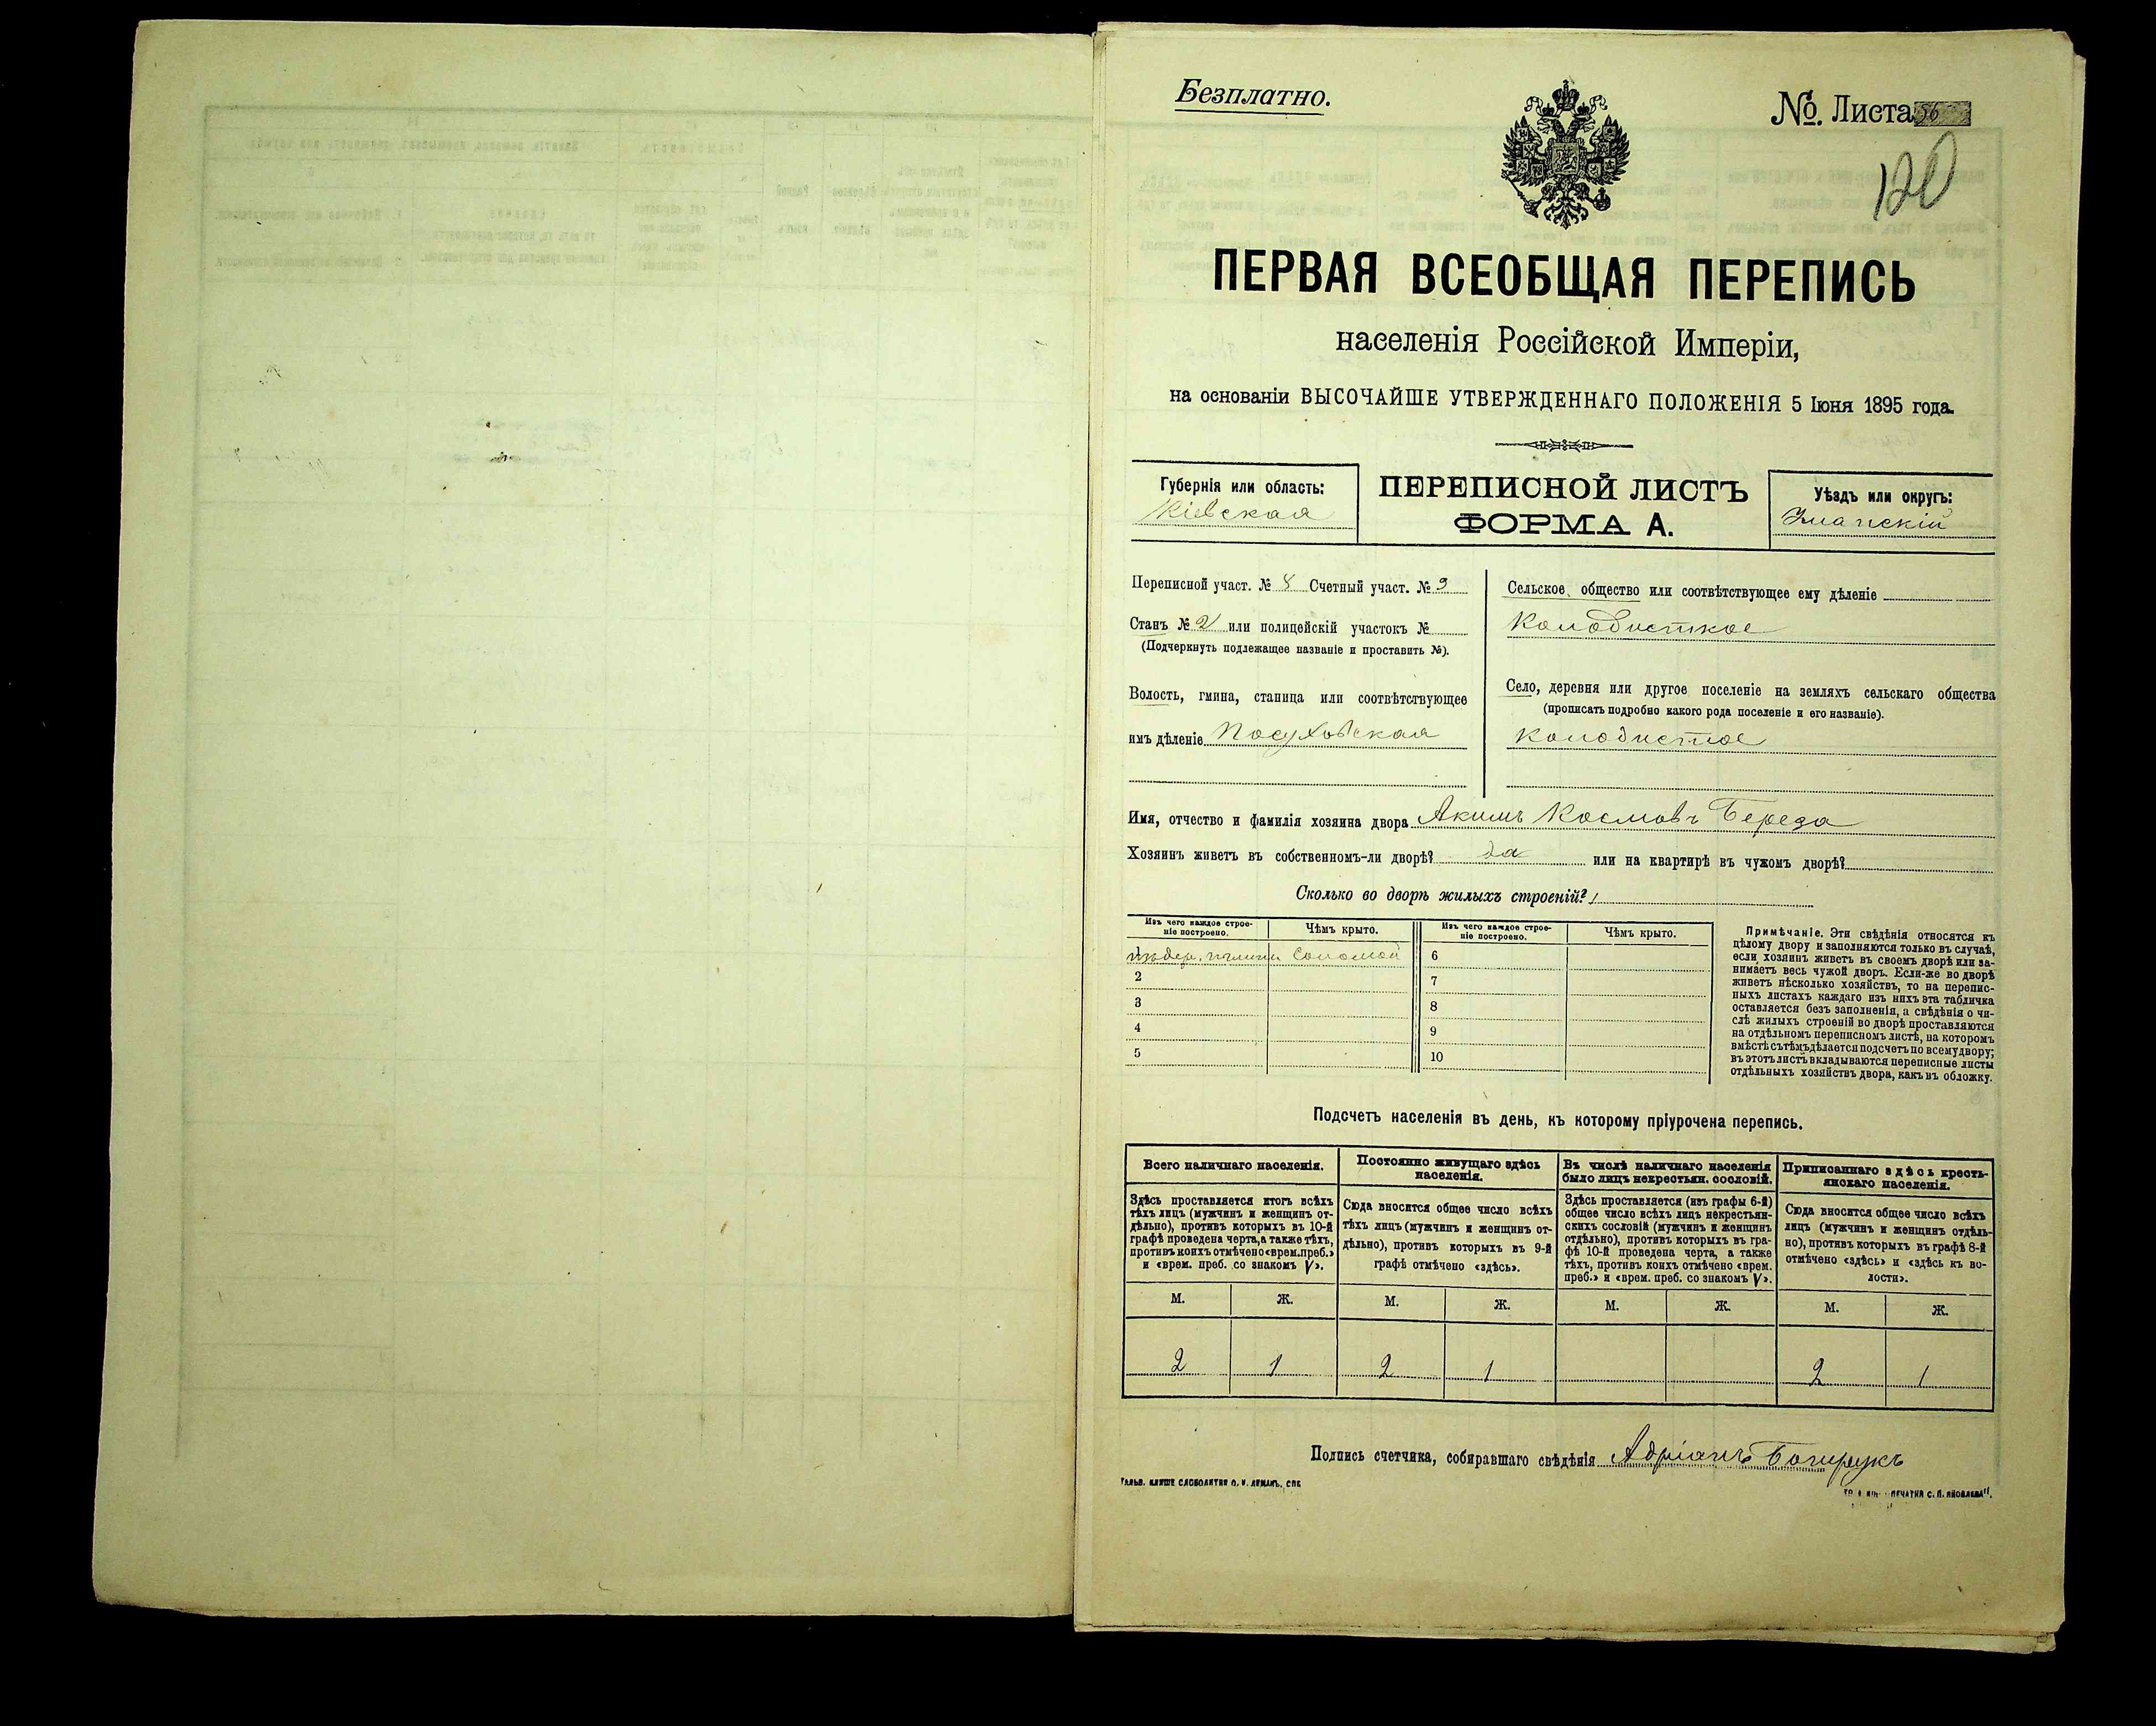 Безплатно.
№. Листа 56
120
ПЕРВАЯ ВСЕОБЩАЯ ПЕРЕПИСЬ
населенія Россійской Имперіи,
на основаніи ВЫСОЧАЙШЕ УТВЕРЖДЕННАГО ПОЛОЖЕНІЯ 5 Іюня 1895 года.
Губернія или область:
Кіевская
ПЕРЕПИСНОЙ ЛИСТЪ
ФОРМА А.
Уѣздъ или округъ:
Уманскій
Переписной участ. № 8 Счетный участ. № 3
Станъ № 2 или полицейскій участокъ №
(Подчеркнуть подлежащее названіе и проставить №).
Волость, гмина, станица или соотвѣтствующее
имъ дѣленіе Посуховская
Сельское общество или соотвѣтствующее ему дѣленіе
Колодисткое
Село, деревня или другое поселеніе на земляхъ сельскаго общества
(прописать подробно какого рода поселеніе и его названіе).
Колодистое
Имя, отчество и фамилія хозяина двора Акимъ Космовъ Береза
Хозяинъ живетъ въ собственномъ-ли дворѣ? да или на квартирѣ въ чужомъ дворѣ?
Сколько во дворѣ жилыхъ строеній? 1
Изъ чего каждое строе-
ніе построено.
Чѣмъ крыто.
Изъ чего каждое строе-
ніе построено.
Чѣмъ крыто.
Соломой
6
2
7
3
8
4
9
5
10
Примѣчаніе. Эти свѣдѣнія относятся къ
цѣлому двору и заполняются только въ случаѣ,
если хозяинъ живетъ въ своемъ дворѣ или за-
нимаетъ весь чужой дворъ. Если-же во дворѣ
живетъ нѣсколько хозяйствъ, то на перепис-
ныхъ листахъ каждаго изъ нихъ эта табличка
оставляется безъ заполненія, а свѣдѣнія о чи-
слѣ жилыхъ строеній во дворѣ проставляются
на отдѣльномъ переписномъ листѣ, на которомъ
вмѣстѣ съ тѣмъ дѣлается подсчетъ по всему двору;
въ этотъ листъ вкладываются переписные листы
отдѣльныхъ хозяйствъ двора, какъ въ обложку.
Подсчетъ населенія въ день, къ которому пріурочена перепись.
Всего наличнаго населенія.
Здѣсь проставляется итогъ всѣхъ
тѣхъ лицъ (мужчинъ и женщинъ от-
дѣльно), противъ которыхъ въ 10-й
графѣ проведена черта, а также тѣхъ,
противъ коихъ отмѣчено «врем. преб.»
и «врем. преб. со знакомъ V».
Постоянно живущаго здѣсь
населенія.
Сюда вносится общее число всѣхъ
тѣхъ лицъ (мужчинъ и женщинъ от-
дѣльно), противъ которыхъ въ 9-й
графѣ отмѣчено «здѣсь».
Въ числѣ наличнаго населенія
было лицъ некрестьян. сословій.
Здѣсь проставляется (изъ графы 6-й)
общее число всѣхъ лицъ некрестьян-
скихъ сословій (мужчинъ и женщинъ
отдѣльно), противъ которыхъ въ гра-
фѣ 10-й проведена черта, а также
тѣхъ, противъ коихъ отмѣчено «врем.
преб.» и «врем. преб. со знакомъ V».
Приписаннаго здѣсь кресть-
янскаго населенія.
Сюда вносится общее число всѣхъ
лицъ (мужчинъ и женщинъ отдѣль-
но), противъ которыхъ въ графѣ 8-й
отмѣчено «здѣсь» и «здѣсь къ во-
лости».
М. Ж. М. Ж. М. Ж. М. Ж.
2 1 2 1 2 1
Подпись счетчика, собиравшаго свѣдѣнія Адріанъ